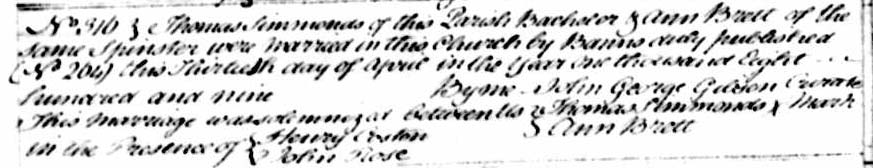 No. 316 } Thomas Simmonds of this Parish Bachelor & Ann Brett of the
same Spinster were Married in this Church by Banns duly published
(No 264) this Thirtieth day of April in the Year one thousand Eight
hundred and nine By me John George Gibson Curate
This Marriage was solemnized between Us } Thomas Simmonds x Mark
} Ann Brett
in the Presence of { Henry
{ John Rose